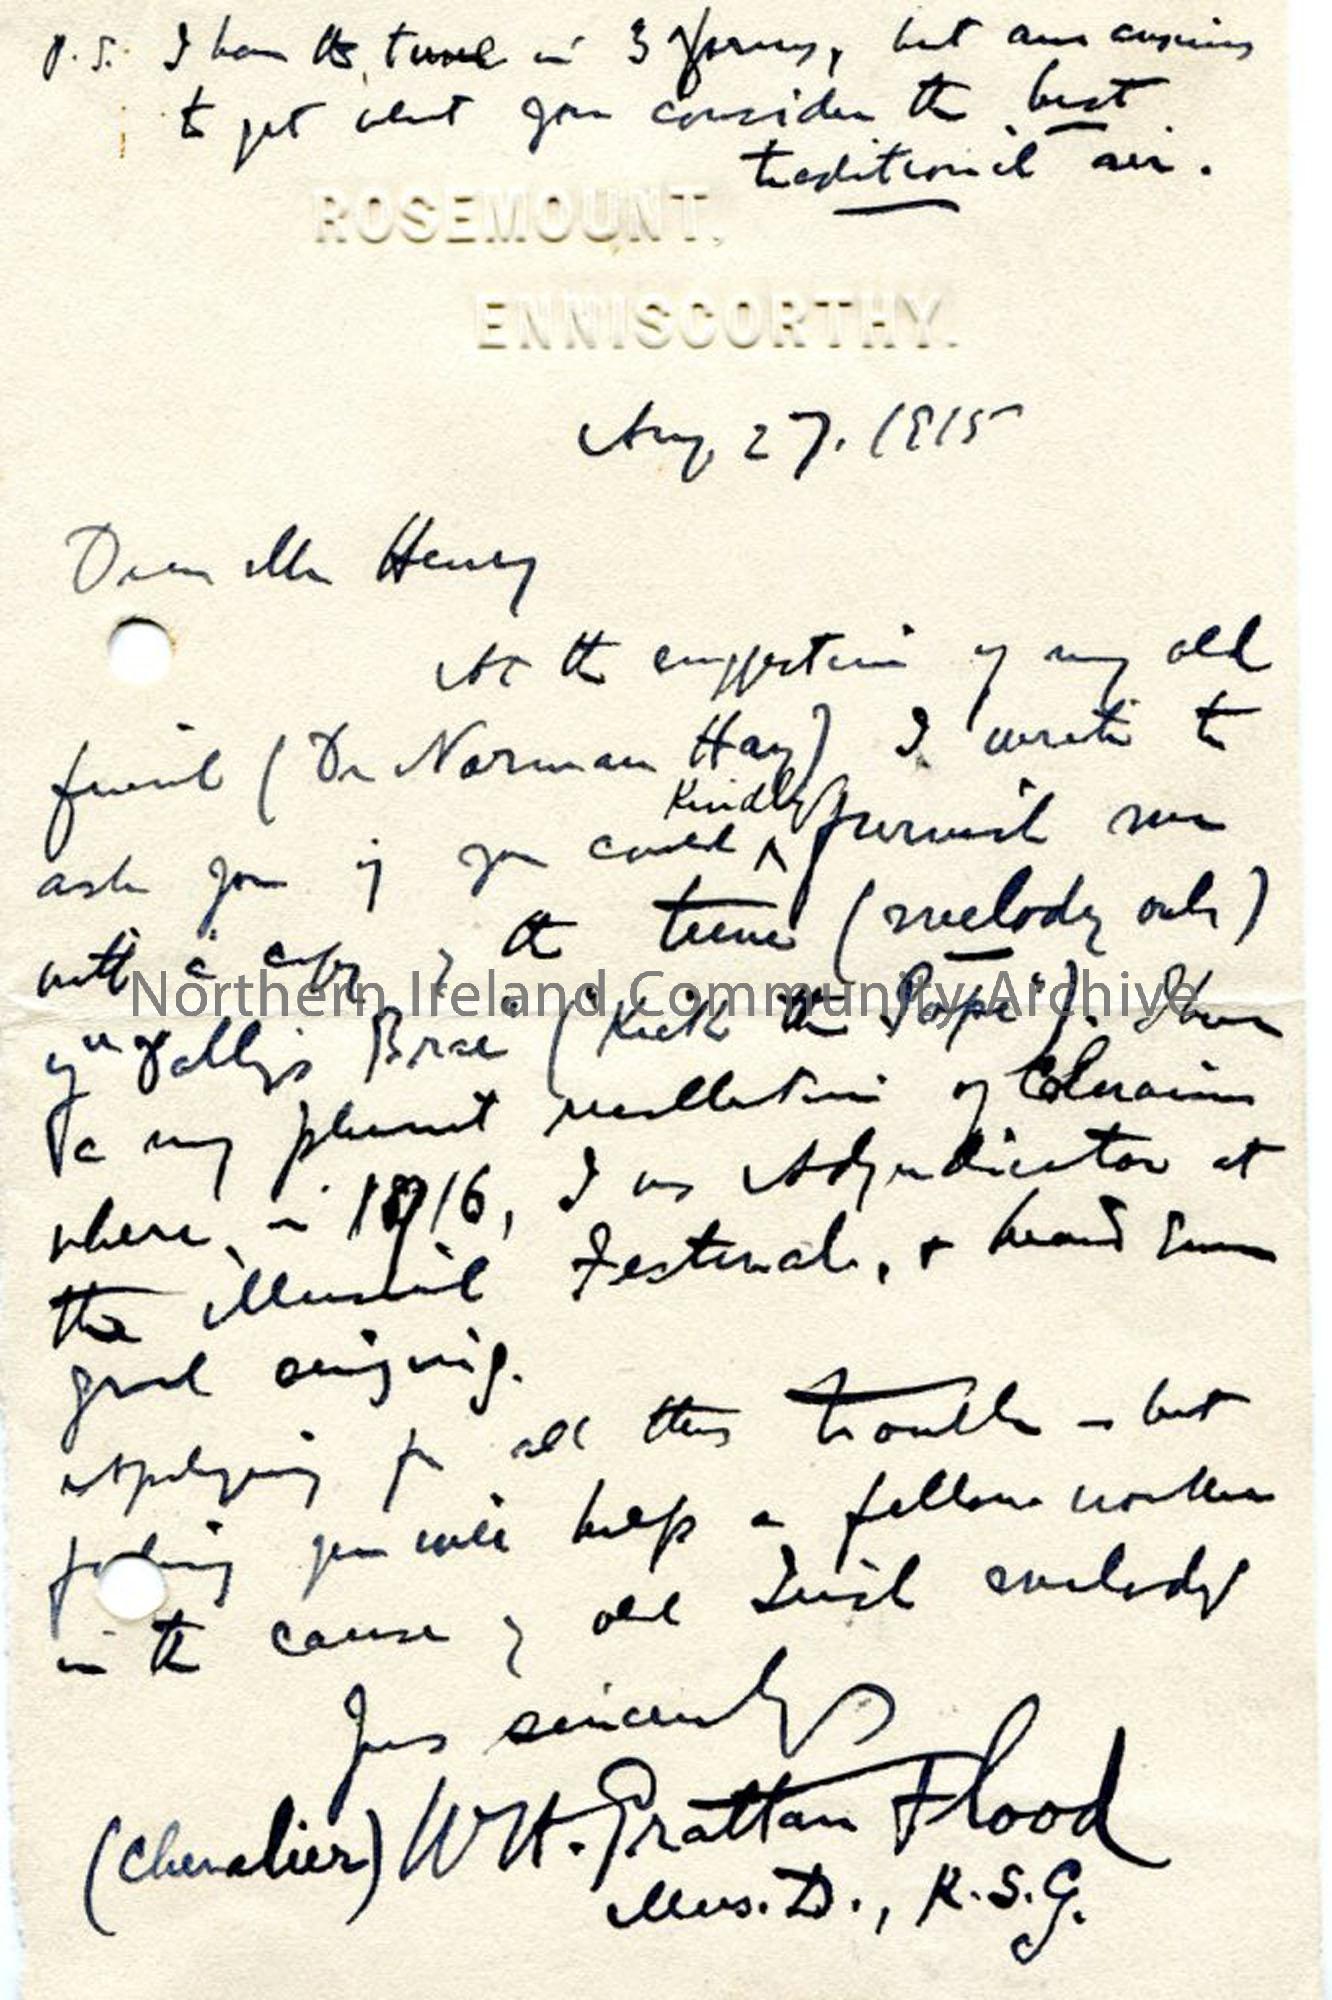 P.S. I have the tune in 3 forms, but am anxious
to get what you consider the best
traditional air.
ROSEMOUNT,
ENNISCORTHY.
Aug. 27. 1915
Dear Mr Henry
At the suggestion of my old
friend (Dr Norman Hay) I write to
ask you if you could kindly furnish me
with a copy of the tune (melody only)
Northern Ireland Community Archive
of "Dolly's Brae" ("Kick the Pope"). I have
a my pleasant recollection of Coleraine
where, in 1916, I was Adjudicator at
the Musical Festival, & heard some
good singing.
Apologising for all this trouble - but
feeling you will help a fellow worker
in the cause of old Irish melody
Yours sincerely
(Chevalier) W H. Grattan Flood
Mus. D., K.S.G.